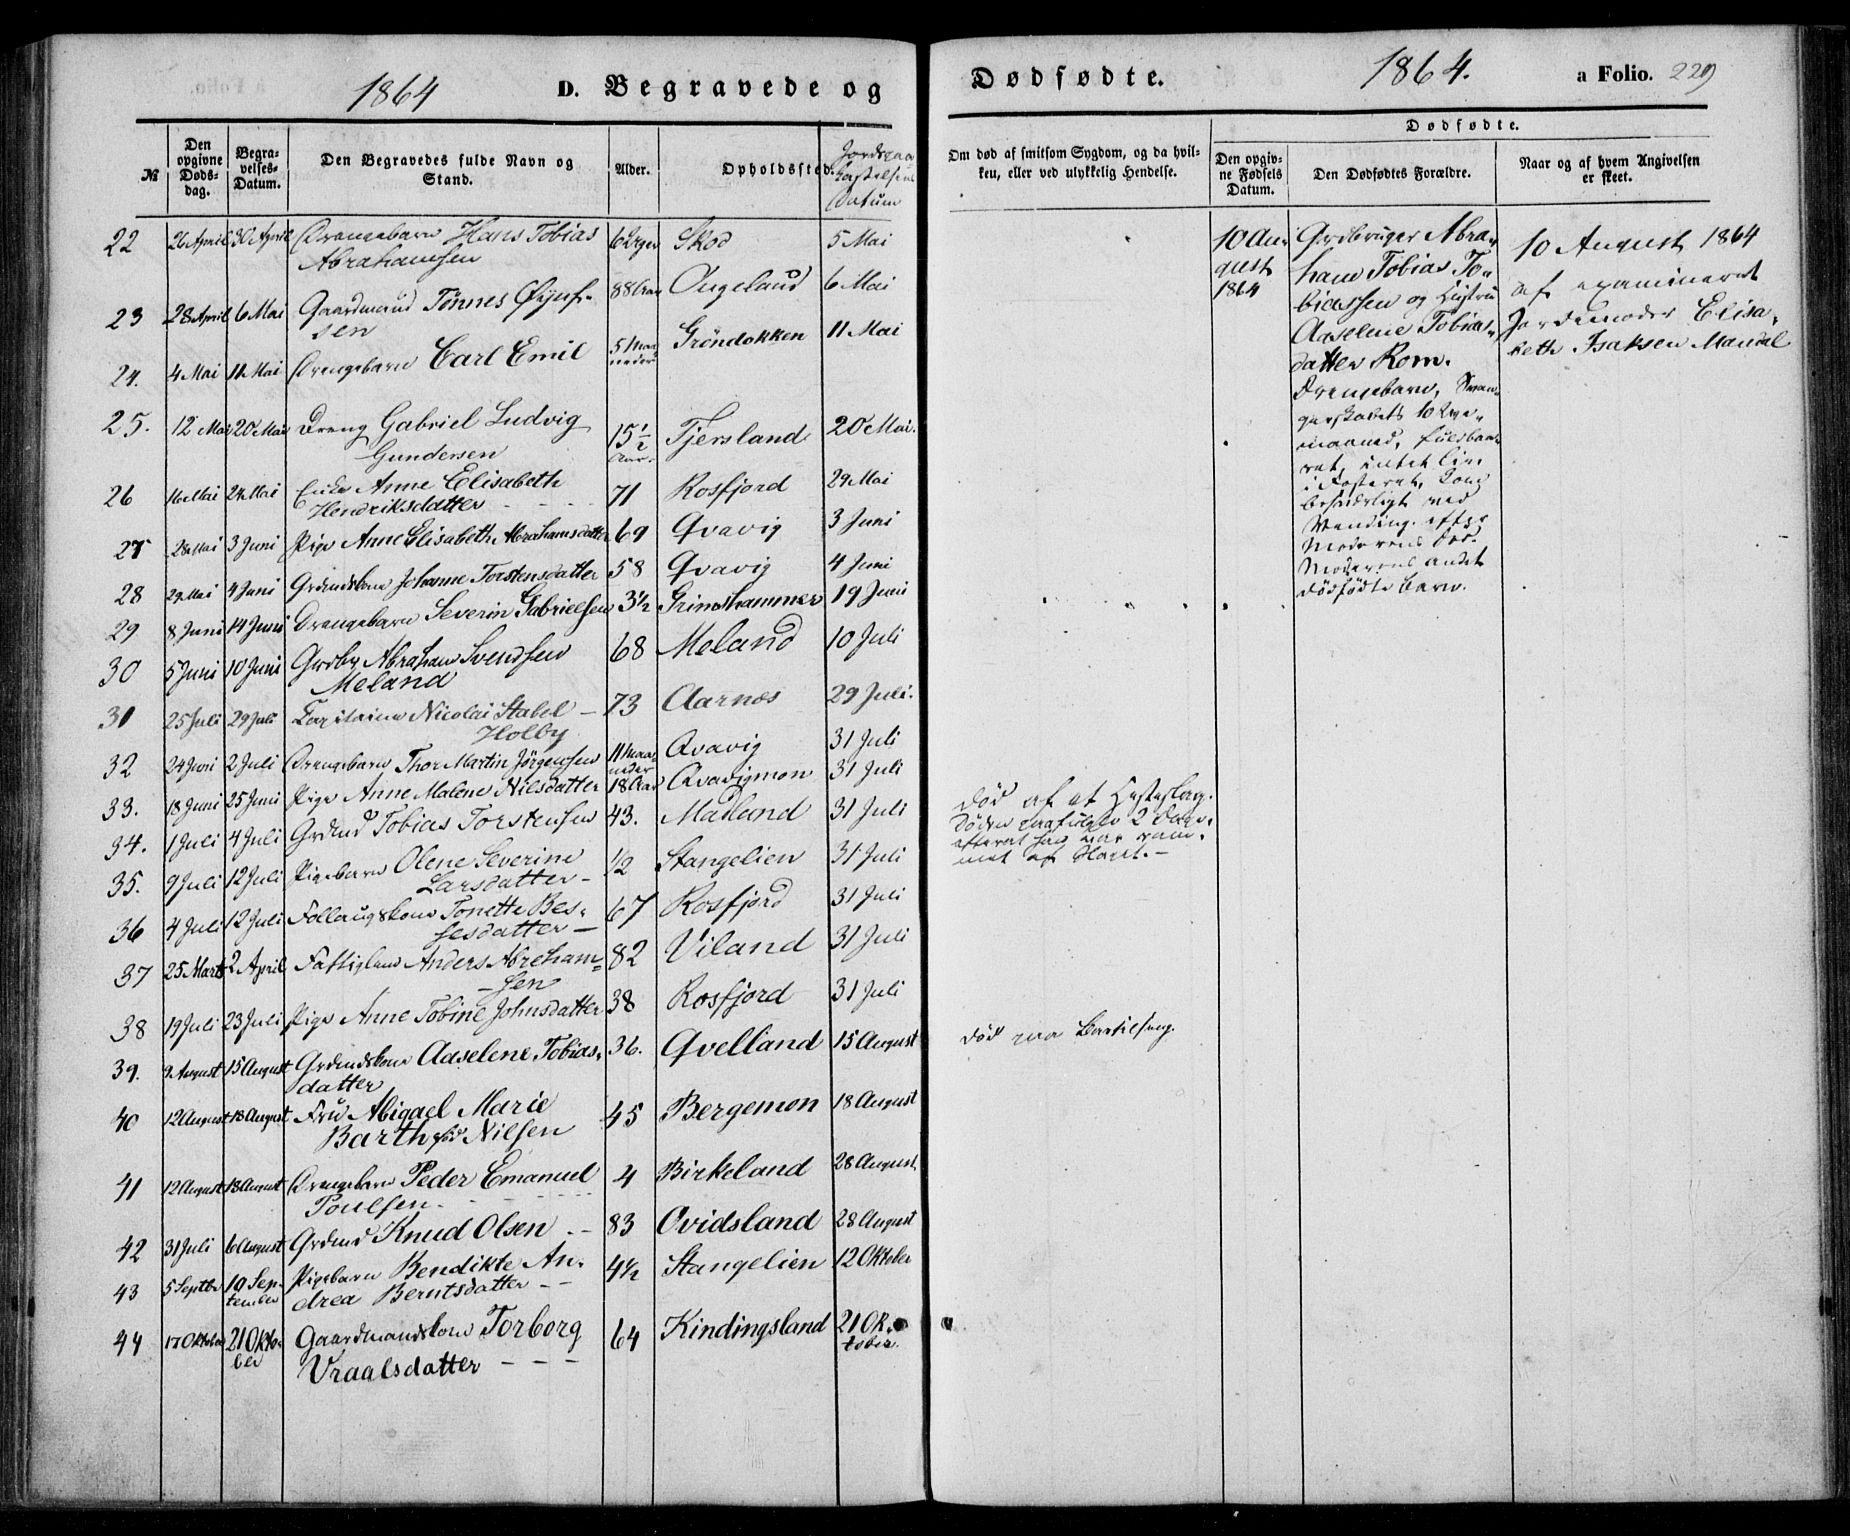 1864 D. Begravede og
№
Den opgivne Døds-dag.
Begra-velses-Datum.
Den Begravedes fulde Navn og Stand.
Alder.
Opholdssted.
Jordspaa kastelsens Datum
22 26 April 30 April Drengebarn Hans Tobias 6 Uger Skod 5 Mai
Abrahamsen
23 28 April 6 Mai Gaardmand Tönnes Öjuf- 88 Aar Augeland 6 Mai
sen
24. 4 Mai 11 Mai Drengebarn Carl Emil 5 Maaneder Gröndokken 11 Mai
25. 12 Mai 20 Mai Dreng Gabriel Ludvig 15 1/2 Aar. Tjersland 20 Mai.
Gundersen
26 16 Mai 24 Mai Enke Anne Elisabeth 71 Rosfjord 29 Mai
Hendriksdatter - - - -
27 28 Mai 3 Juni Pige Anne Elisabeth Abrahamsdatter 69 Qvavig 3 Juni
28 29 Mai 4 Juni Grdmdskone Johanne Torstensdatter 58 Qvavig 4 Juni
29 8 Juni 14 Juni Drengebarn Severin Gabrielsen 3 1/2 Grimshammer 19 Juni
30 5 Juni 10 Juni Grdbr Abraham Svendsen 68 Meland 10 Juli
Meland
31 25 Juli 29 Juli Capitaine Nicolai Stabel - 73 Aarnes 29 Juli.
Holby
32 24 Juni 2 Juli Drengebarn Thor Martin Jörgensen 11 Maaneder Qvavig 31 Juli
33. 18 Juni 25 Juni Pige Anne Malene Nilsdatter 18 Aar Qvavigmon 31 Juli
34. 1 Juli 4 Juli Grdmd Tobias Torstensen 43. Madland 31 Juli
35. 9 Juli 12 Juli Pigebarn Olene Severine 1/2 Stangelien 31 Juli
Larsdatter -
36 4 Juli 12 Juli Follaugskone Tonette Bes- 67 Rosfjord 31 Juli
sesdatter -
37 25 Marts 2 April Fattiglem Anders Abraham- 82 Viland 31 Juli
- sen
38 19 Juli 23 Juli Pige Anne Tobine Johnsdatter 38 Rosfjord 31 Juli
39. 9 August 15 August Grdmdskone Aaselene Tobias- 36. Qvelland 15 August
datter
40 12 August 18 August Fru Abigael Marie 45 Bergemon 18 August
Barth född Nilsen
41 12 August 18 August Drengebarn Peder Emanuel 4 Birkeland 28 August
Poulsen - - - - -
42 31 Juli 6 August Grdmd Knud Olsen - - 83 Ovidsland 28 August
43 5 Septbr 10 September Pigebarn Bendikte An- 4 1/2 Stangelien 12 Oktober
drea Berntsdatter - -
44 17 Oktober 21 Oktober Gaardmandskone Torborg 64 Kindingsland 21 Oktober.
Vraalsdatter - - -
Dødfødte. 1864. a Folio. 229
Om død af smitsom Sygdom, og da hvil-
ken, eller ved ulykkelig Hendelse.
Dødfødte.
Den opgiv-
ne Fødsels
Datum.
Den Dødfødtes Forældre.
Naar og af hvem Angivelsen
er skeet.
10 Au-
gust
1864
Grdbruger Abra-
ham Tobias To-
biassen og Hustru
Aaselene Tobias-
datter Rom.
Drengebarn, Svan-
gerskabets 10de
maaned, fuldbaa-
ret, intet Liv
i Fosteret, kom
besværligt ved
Vending. efter
Moderens Död.
Moderens andet
dödfödte barn.
10 August 1864
af examineret
Jordemoder Elisa-
beth Isaksen Mandal
Död af et Hesteslag.
Döden paafulgte 2 Dage
efterat han var ram-
met af Slaget. -
död paa Barselseng.